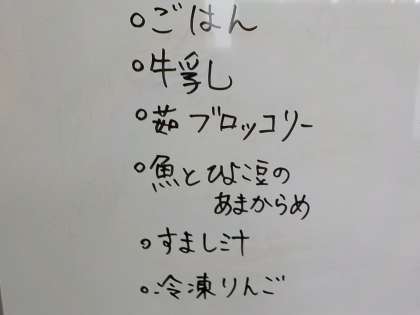 ○ごはん
○牛乳
○茹ブロッコリー
○魚とひよこ豆の
あまからめ
○すまし汁
○冷凍りんご